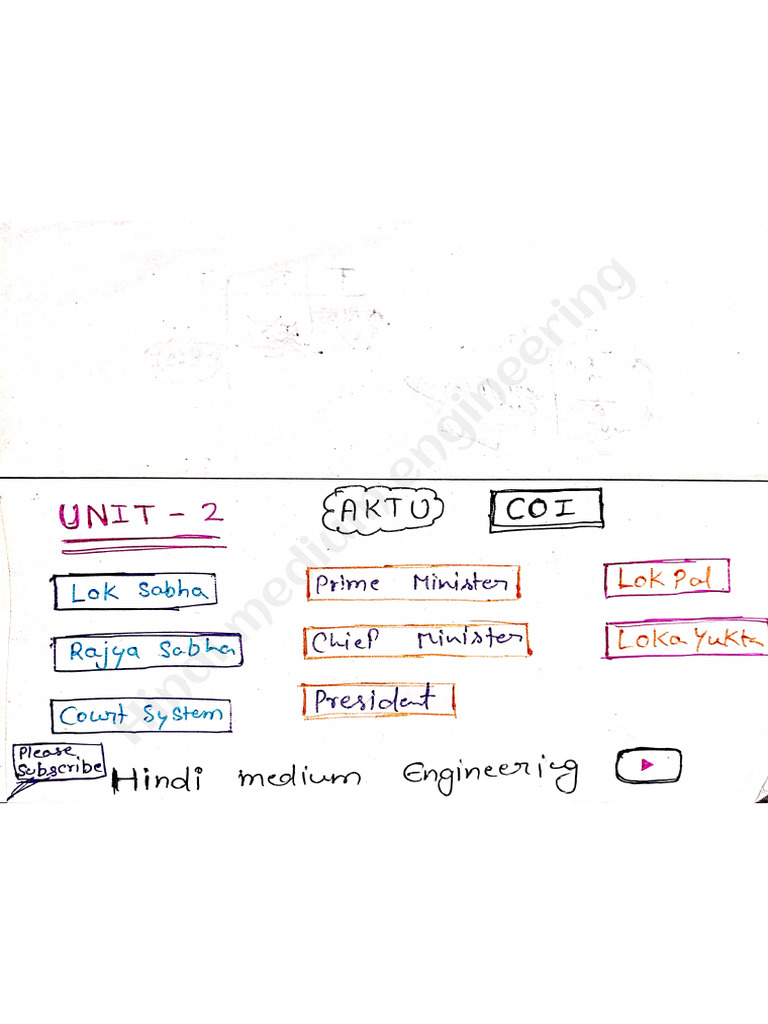 Hindi medium engineering
UNIT - 2
AKTU
COI
Lok Sabha
Prime Minister
Lok Pal
Rajya Sabha
Chief Minister
Loka Yukta
Court System
President
Please
Subscribe
Hindi medium Engineering